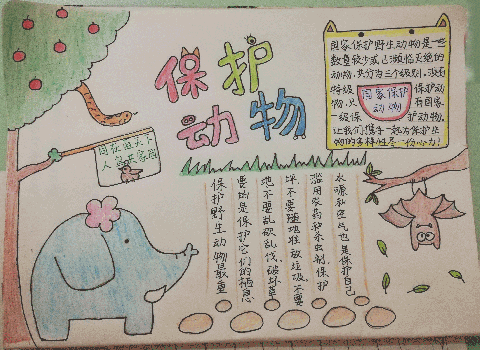 保护
动物
同在蓝天下
人鸟共家园
国家保护野生动物是一些
数量较少或已濒临灭绝的
动物,共分为三个级别,没有
特级 保护动
物,只 有国家
一级保 护动物,
让我们携手一起为保护生
物的多样性尽一份心力!
国家保护
动物
保护野生动物最重
要的是保护它们的栖息
地不要乱砍乱伐,破坏草
坪,不要随地堆放垃圾,不要
滥用农药和杀虫剂,保护
水源和空气也是保护自己